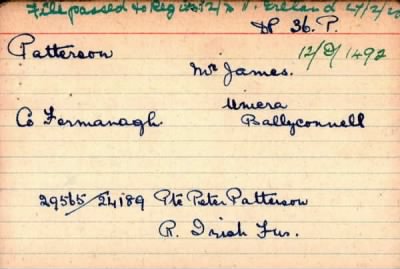 File passed to Reg 12/2 Ireland 27/2/20
DP 36. P.
Patterson
12/D/1492
Mr James.
Umera
Co Fermanagh. Ballyconnell
29565/24189 Pte Peter Patterson
R. Irish Fus.